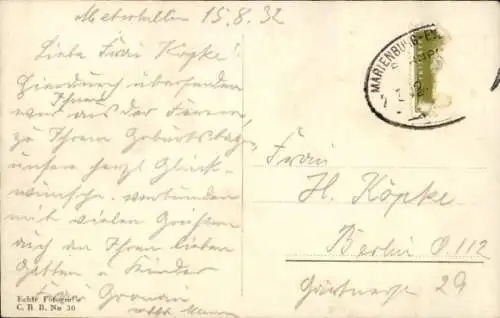 15.8.32
Liebe Frau Köpke!
Hierdurch übersenden
wir Ihnen aus der Ferne
zu Ihrem Geburtstage
unsere herzl. Glück-
wünsche verbunden
mit vielen Grüßen
auch an Ihren lieben
Gatten u. Kinder
Frau
MARIENBURG-
Frau
H. Köpke
Berlin O 112
29
Echte Fotografie
C. B. B. No 30